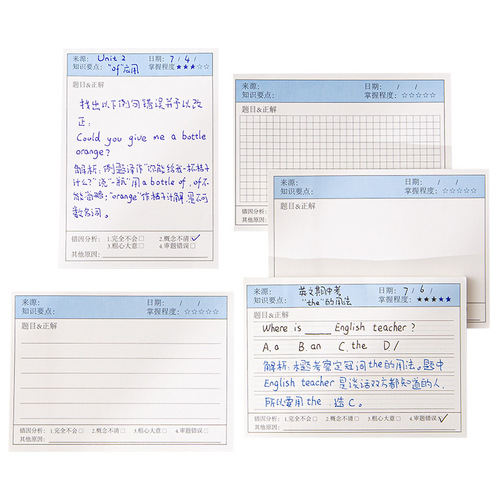 来源: Unit 2 日期: 7 / 4 /
知识要点: "of"应用 掌握程度:★★★☆☆
题目&正解
找出以下例句错误并予以改
正:
Could you give me a bottle
orange?
解析:例题译作"你能给我一杯桔子
什么?"说"一瓶"用a bottle of,of不
能省略;"orange"作桔子汁解,是不可
数名词。
错因分析: 1.完全不会☐ 2.概念不清☑
3.粗心大意☐ 4.审题错误☐
其他原因:
来源: 日期: / /
知识要点: 掌握程度:☆☆☆☆☆
题目&正解
来源: 日期: / /
知识要点: 掌握程度:☆☆☆☆☆
题目&正解
来源: 日期: / /
知识要点: 掌握程度:☆☆☆☆☆
题目&正解
错因分析: 1.完全不会☐ 2.概念不清☐ 3.粗心大意☐ 4.审题错误☐
其他原因:
来源: 英文期中考 日期: 7 / 6 /
知识要点: "the"的用法 掌握程度:★★★★★
题目&正解
Where is ____ English teacher?
A.a B.an C.the D/
解析:本题考察定冠词the的用法。题中
English teacher是谈话双方都知道的人,
所以要用the 选C。
错因分析: 1.完全不会☐ 2.概念不清☐ 3.粗心大意☐ 4.审题错误☑
其他原因: